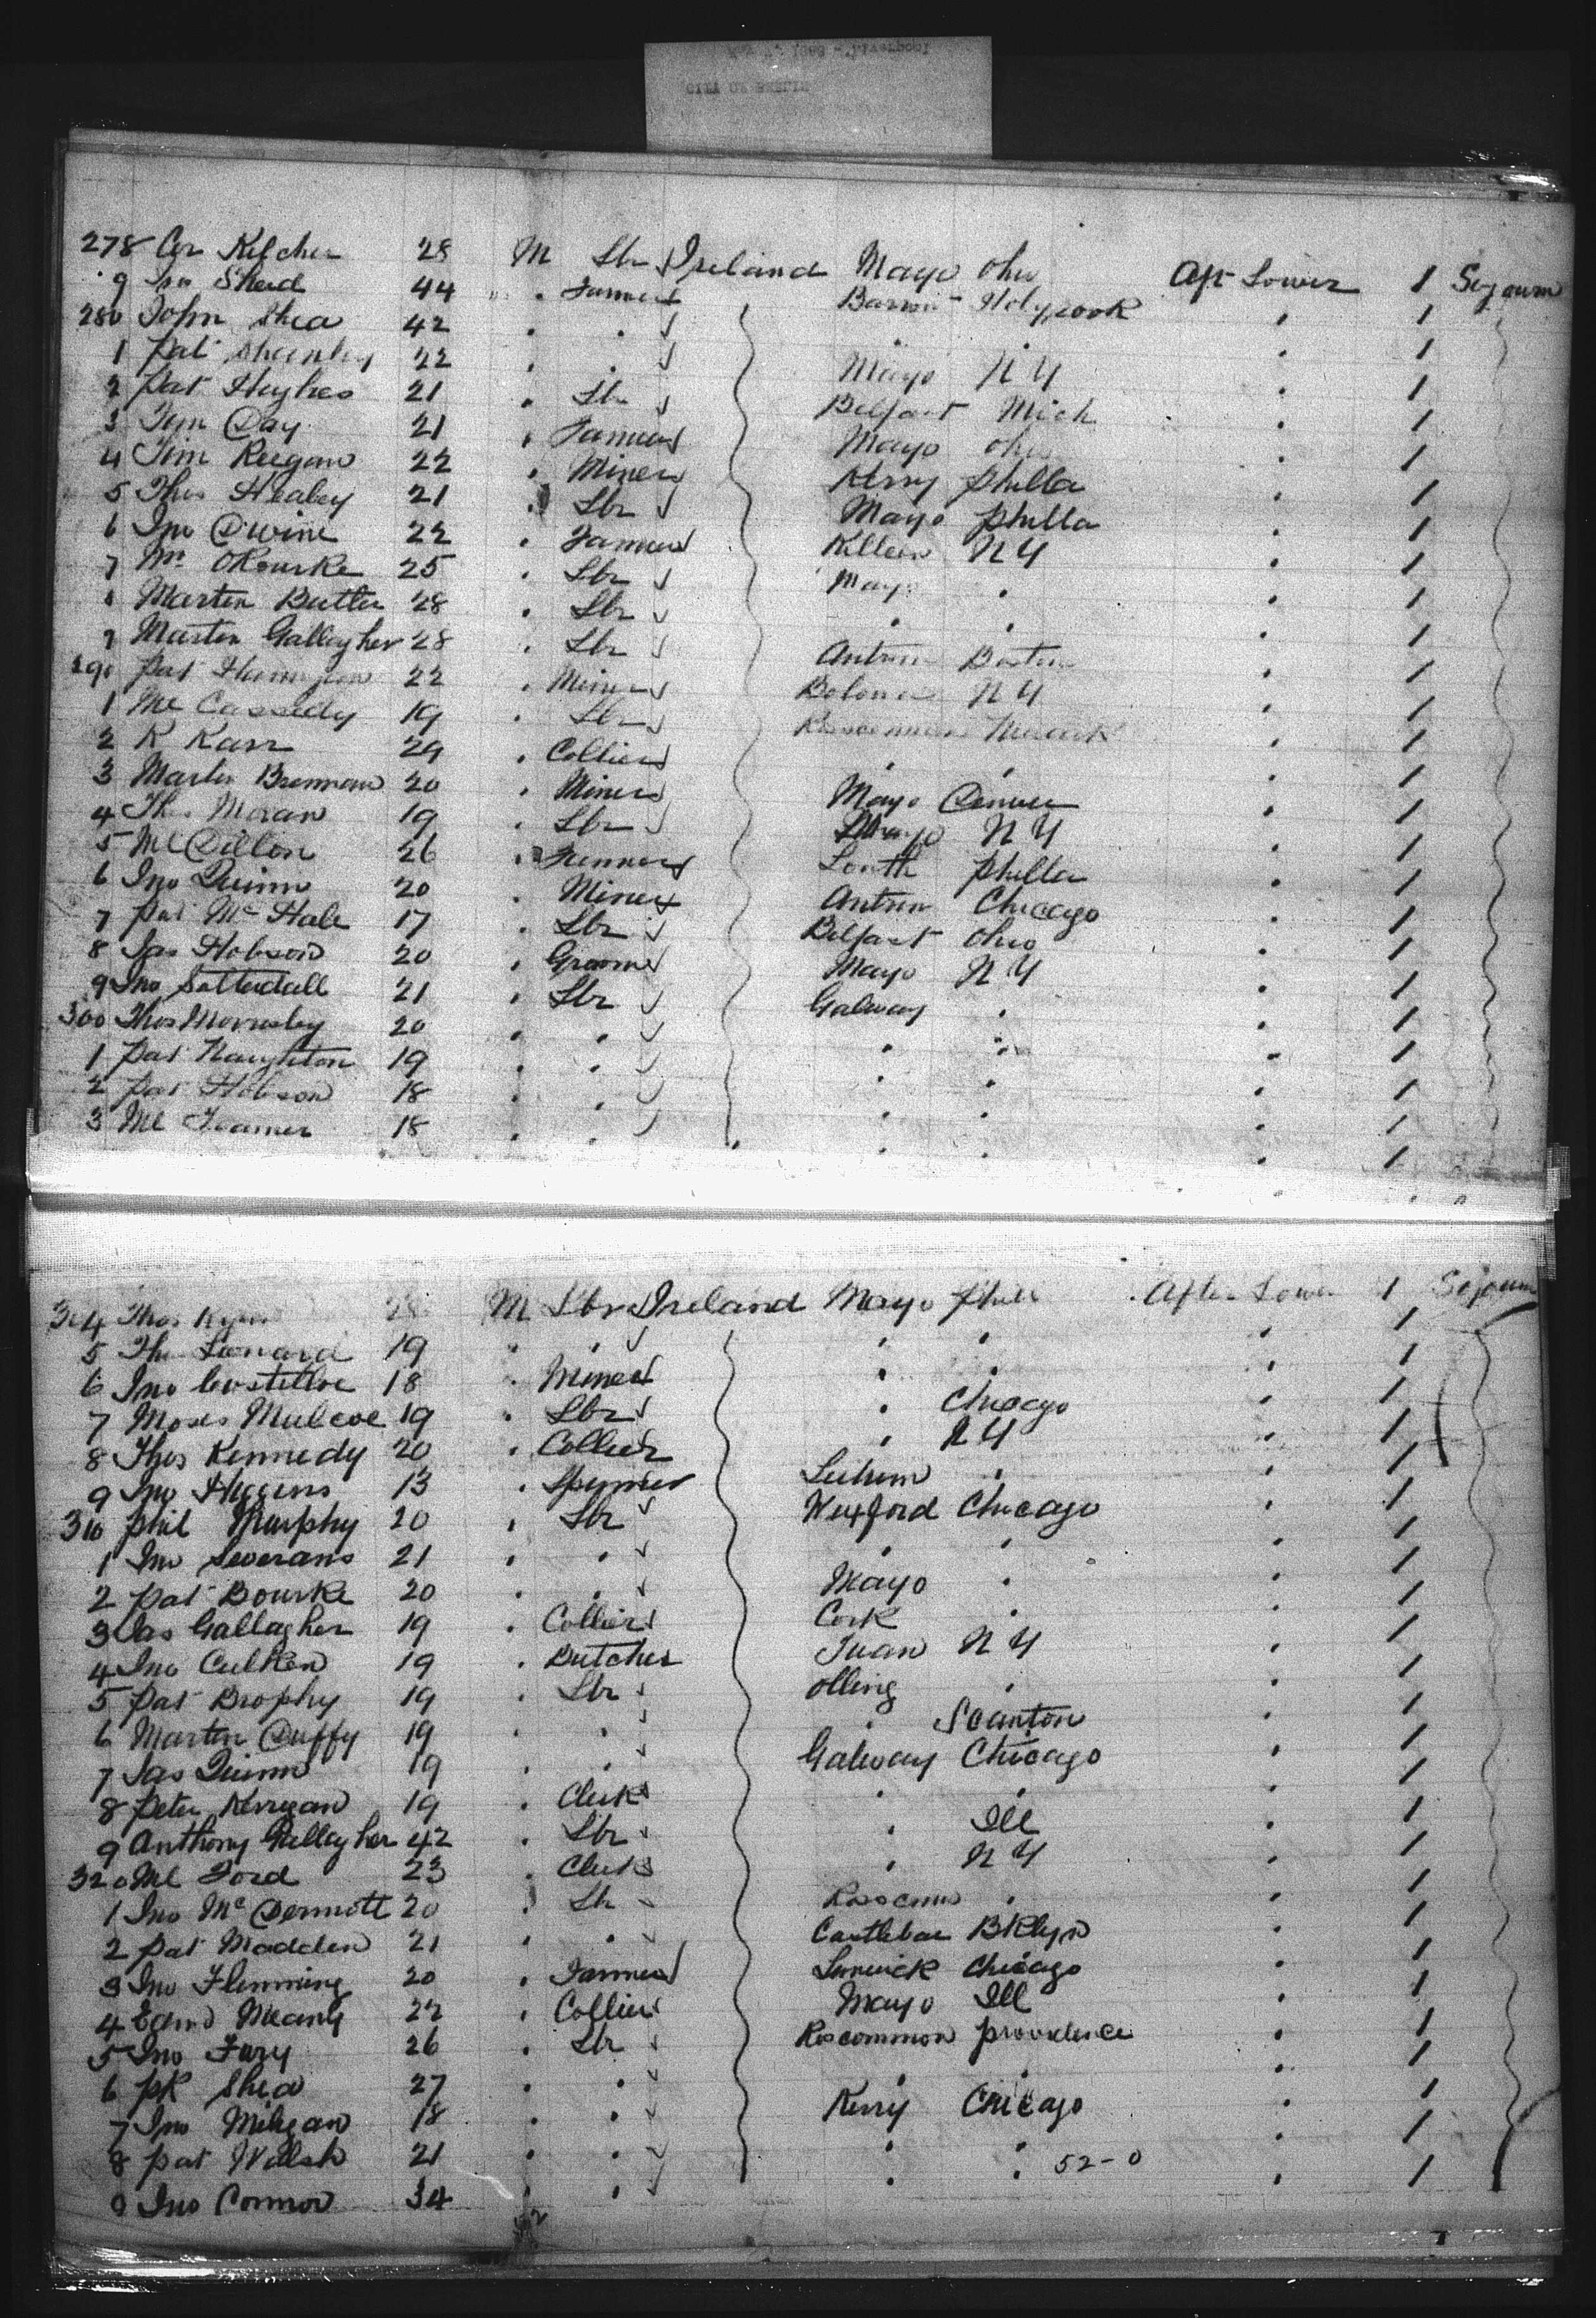 CITY OF BERLIN
278 Cor Kelcher 28 M Lbr Ireland Mayo Ohio Aft Lower 1 Sojourn
9 Jno Shead 44 " Farmer Holyoook 1
280 John Shea 42 . . . . . 1
1 Pat 22 . . Mayo N Y . 1
2 Pat Hughes 21 . Lbr Belfast Mich . 1
3 Tim Day 21 . Farmer Mayo Ohio . 1
4 Tim Reegan 22 . Miner Kerry Philla . 1
5 Thos Healey 21 . Lbr Mayo Philla . 1
6 Jno Dwine 22 . Farmer Killeen N Y . 1
7 Ml ORourke 25 . Lbr Mayo . . 1
8 Martin Butler 28 . Lbr . . . 1
9 Martin Gallagher 28 . Lbr Antrim Boston . 1
290 Pat 22 . Miner N Y . 1
1 Ml Cassidy 19 . Lbr . 1
2 K Karr 29 . Collier . . . 1
3 Martin Brennan 20 . Miner Mayo Denver . 1
4 Thos Moran 19 . Lbr Mayo N Y . 1
5 Ml Dillon 26 . Louth Philla . 1
6 Jno Quinn 20 . Miner Antrim Chicago . 1
7 Pat McHale 17 . Lbr Belfast Ohio . 1
8 Jas Hobson 20 . Groom Mayo N Y . 1
9 Jno 21 . Lbr Galway . . 1
300 Thos 20 . . . . . 1
1 Pat Naughton 19 . . . . . 1
2 Pat Hobson 18 . . . . . 1
3 Ml 18 . . . . . 1
304 Thos 28 M Lbr Ireland Mayo Phill Aft Lower 1 Sojourn
5 Tho Leonard 19 . . . . . 1
6 Jno Costelloe 18 . Miner . . . 1
7 Moses Mulcoe 19 . Lbr . Chicago . 1
8 Thos Kennedy 20 . Collier . N Y . 1
9 Jno Higgins 13 . Spinner . . 1
310 Phil Murphy 20 . Lbr Wexford Chicago . 1
1 Jno Severans 21 . . . . . 1
2 Pat Bourke 20 . . Mayo . . 1
3 Jas Gallagher 19 . Collier Cork . . 1
4 Jno Culken 19 . Butcher Tuam N Y . 1
5 Pat Brophy 19 . Lbr olling . . 1
6 Martin Duffy 19 . . . Scanton . 1
7 Jas Quinn 19 . . Galway Chicago . 1
8 Peter Kerrigan 19 . Clerk . . . 1
9 Anthony Gallagher 42 . Lbr . Ill . 1
320 Ml Ford 23 . Clerk . N Y . 1
1 Jno McDermott 20 Lbr . . 1
2 Pat Madden 21 . . Castlebar Bklyn . 1
3 Jno Flemming 20 . Farmer Limerick Chicago . 1
4 Edmd Meany 22 . Collier Mayo Ill . 1
5 Jno Fury 26 . Lbr Roscommon Providence . 1
6 PK Shea 27 . . . . . 1
7 Jno Miligan 18 . . Kerry Chicago . 1
8 Pat Walsh 21 . . . . 52-0 . 1
9 Jno Connor 34 . . . . . 1